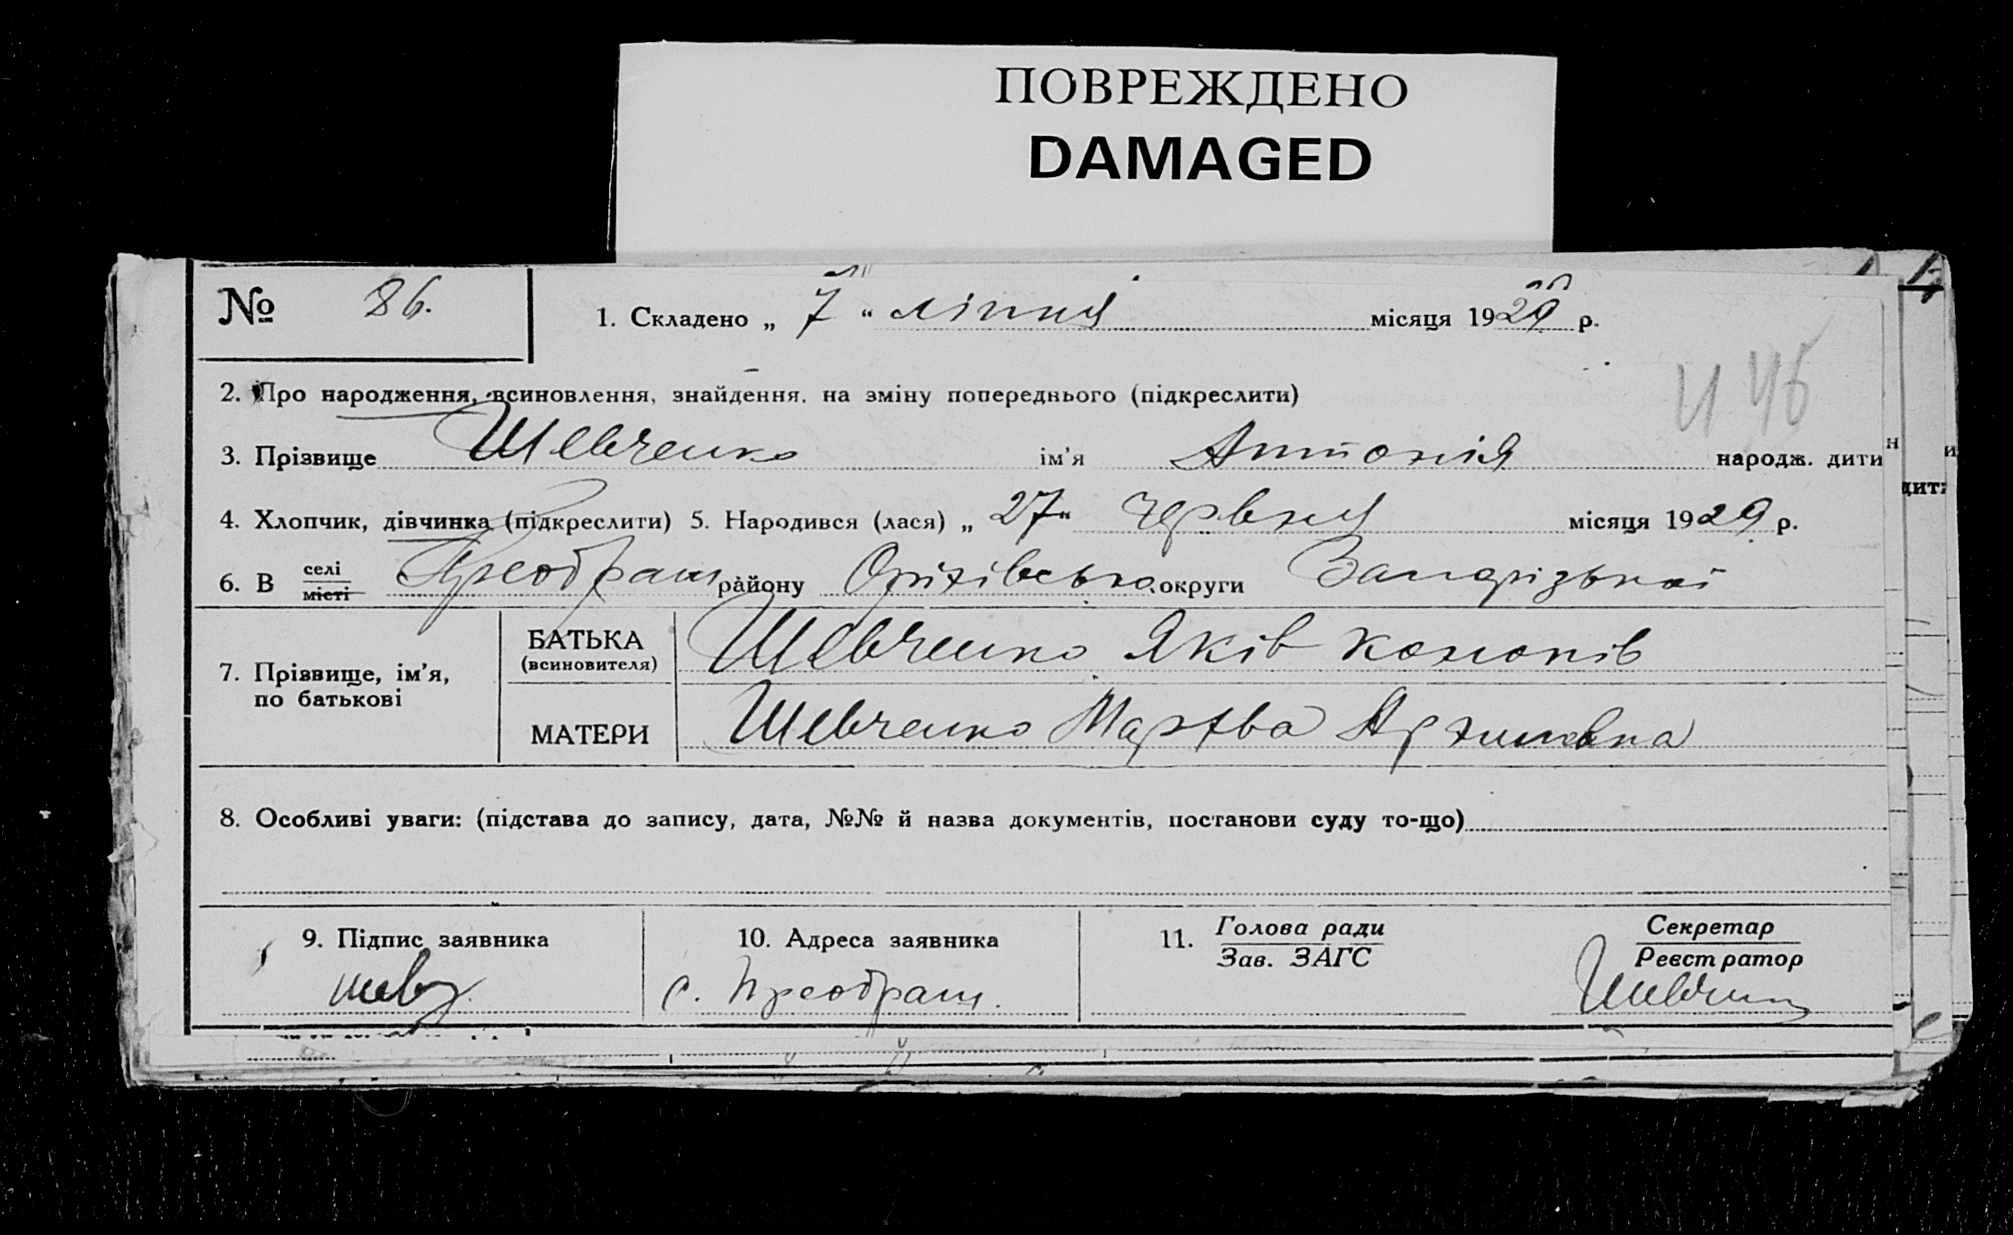 ПОВРЕЖДЕНО
DAMAGED
№ 86. 1. Складено „ 7 “ ліпня місяця 1929 р.
2. Про народження, всиновлення, знайдення, на зміну попереднього (підкреслити)
И 46
3. Прізвище Шевченко ім'я Антонія народж. дити
4. Хлопчик, дівчинка (підкреслити) 5. Народився (лася) „ 27 “ червня місяця 1929 р.
6. В селі місті Преображ району Оріхівсько округи Запорізькоі
7. Прізвище, ім'я, по батькові
БАТЬКА (всиновителя) Шевченко Яків Кононів
МАТЕРИ Шевченко Мархва Артимовна
8. Особливі уваги: (підстава до запису, дата, №№ й назва документів, постанови суду то-що)
9. Підпис заявника 10. Адреса заявника 11. Голова ради Секретар
Зав. ЗАГС Реєстратор
шевч. с. Преображ.